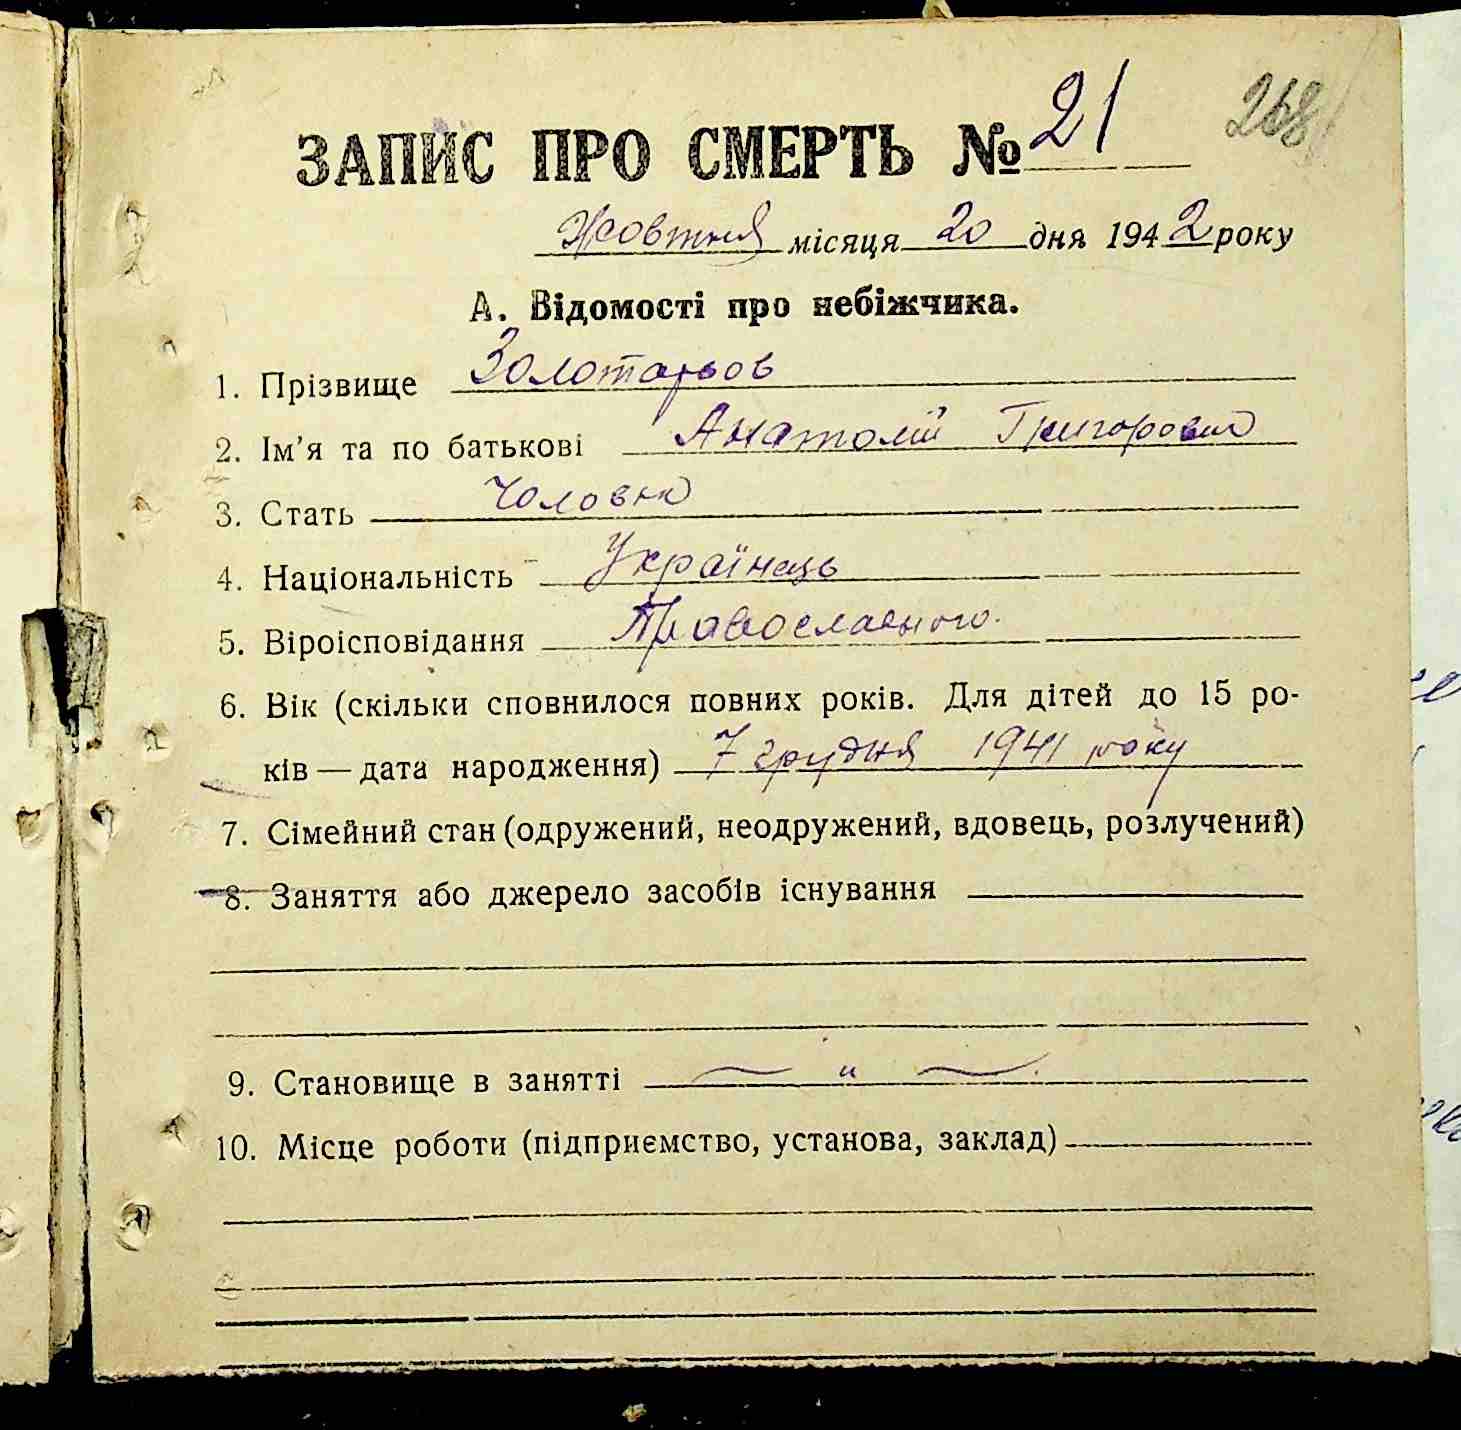 268
ЗАПИС ПРО СМЕРТЬ № 21
Жовтня місяця 20 дня 1942 року
А. Відомості про небіжчика.
1. Прізвище Золотарьов
2. Ім'я та по батькові Анатолій Григорович
3. Стать Чоловік
4. Національність Українець
5. Віроісповідання Православного.
6. Вік (скільки сповнилося повних років. Для дітей до 15 ро-
ків — дата народження) 7 грудня 1941 року
7. Сімейний стан (одружений, неодружений, вдовець, розлучений)
8. Заняття або джерело засобів існування
9. Становище в занятті — " —
10. Місце роботи (підприємство, установа, заклад)